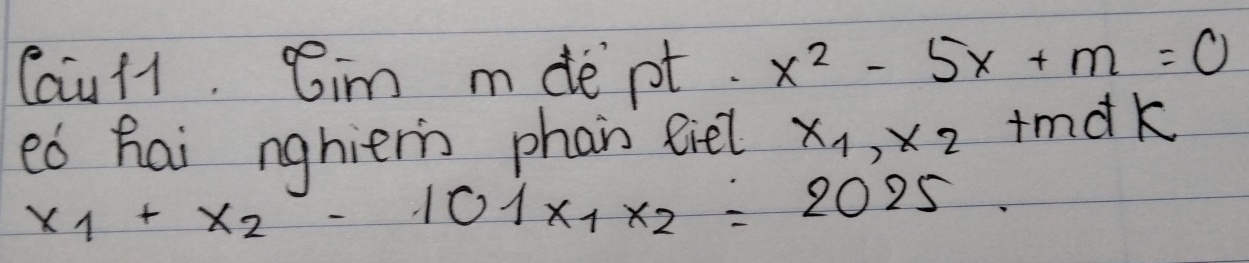 Câu 11. Tìm m để pt. x² - 5x + m = 0
có hai nghiệm phân biệt x₁, x₂ tmđk
x₁ + x₂ - 101x₁x₂ = 2025.